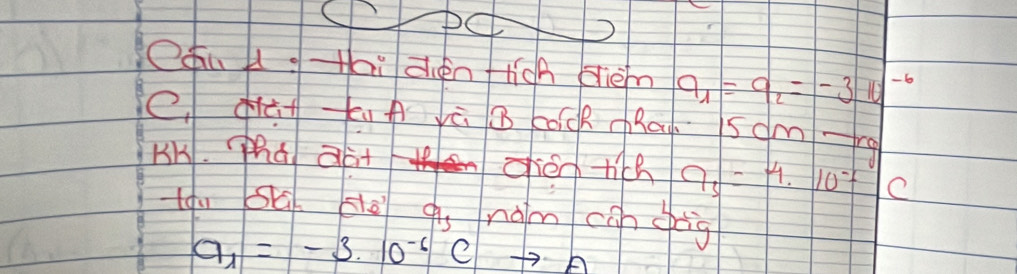 Câu 1: Hai điện tích điểm q₁ = q₂ = -3.10⁻⁶
C, đặt tại A và B cách nhau 15cm trg
KK. Phải đặt điện tích q₃ = 4.10⁻⁷ C
tại đâu để q₃ nằm cân bằng
q₁ = -3.10⁻⁶ C → A